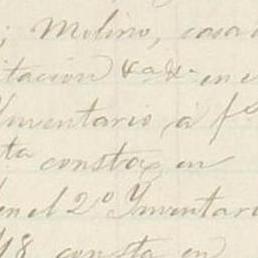 ; Molino, casa
itacion &a&. en e
Inventario, á fs
ta consta, en
en el 2º Inventari
18 consta en